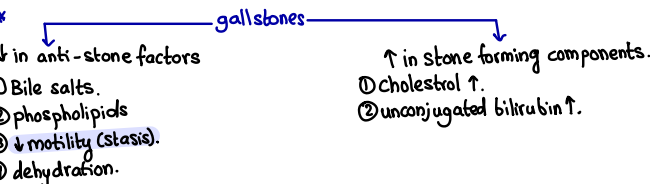 *
gallstones
↓ in anti-stone factors
① Bile salts.
② phospholipids
③ ↓ motility (stasis).
④ dehydration.
↑ in stone forming components.
① cholestrol ↑.
② unconjugated bilirubin ↑.